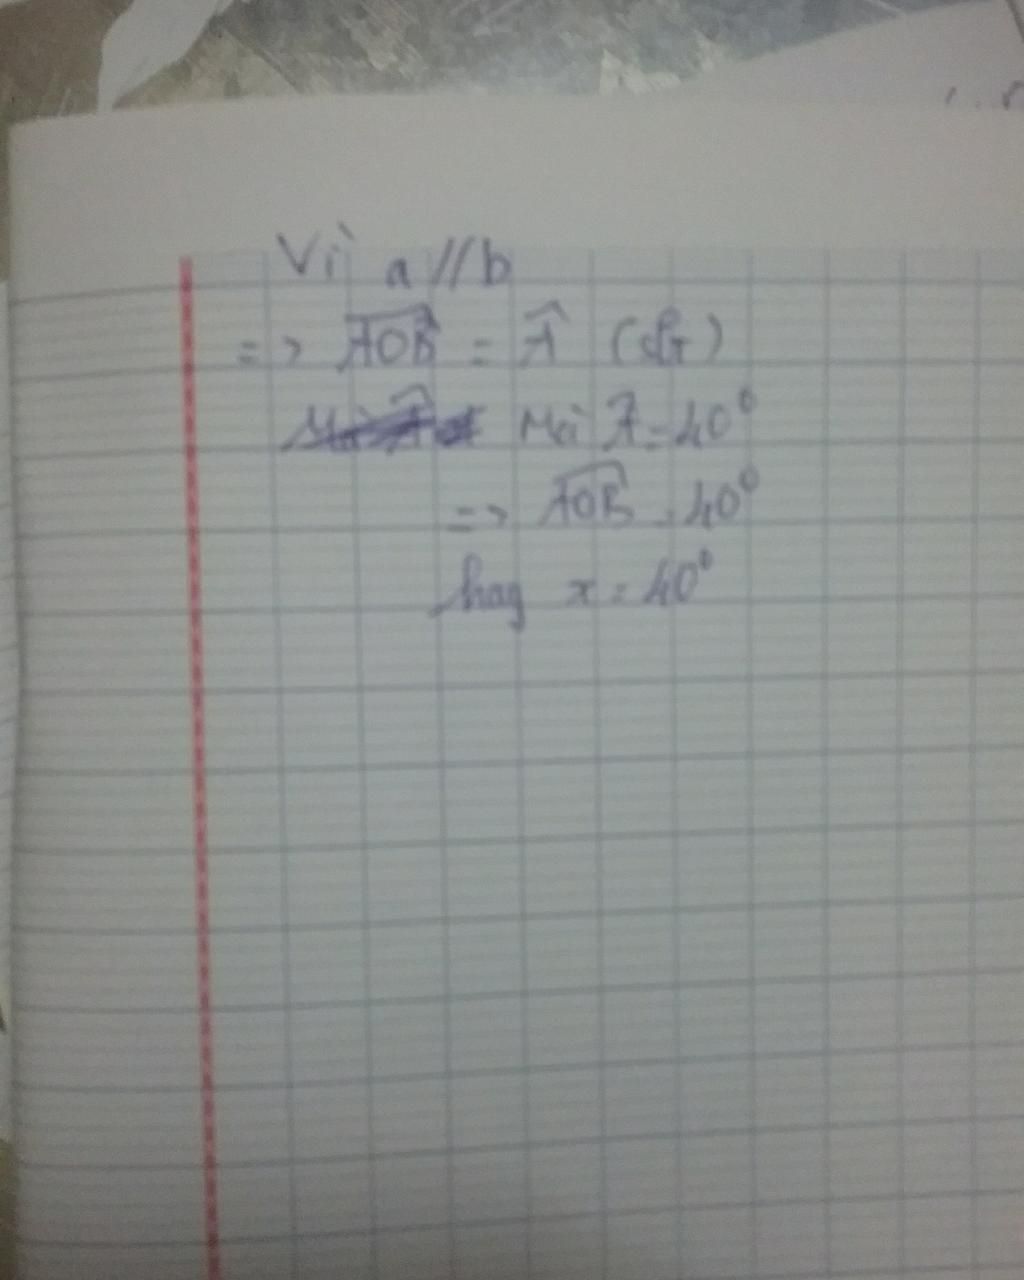 Vì a // b
=> \widehat{AOB} = \widehat{A} (slt)
Mà \widehat{A} = 40°
=> \widehat{AOB} = 40°
hay x = 40°